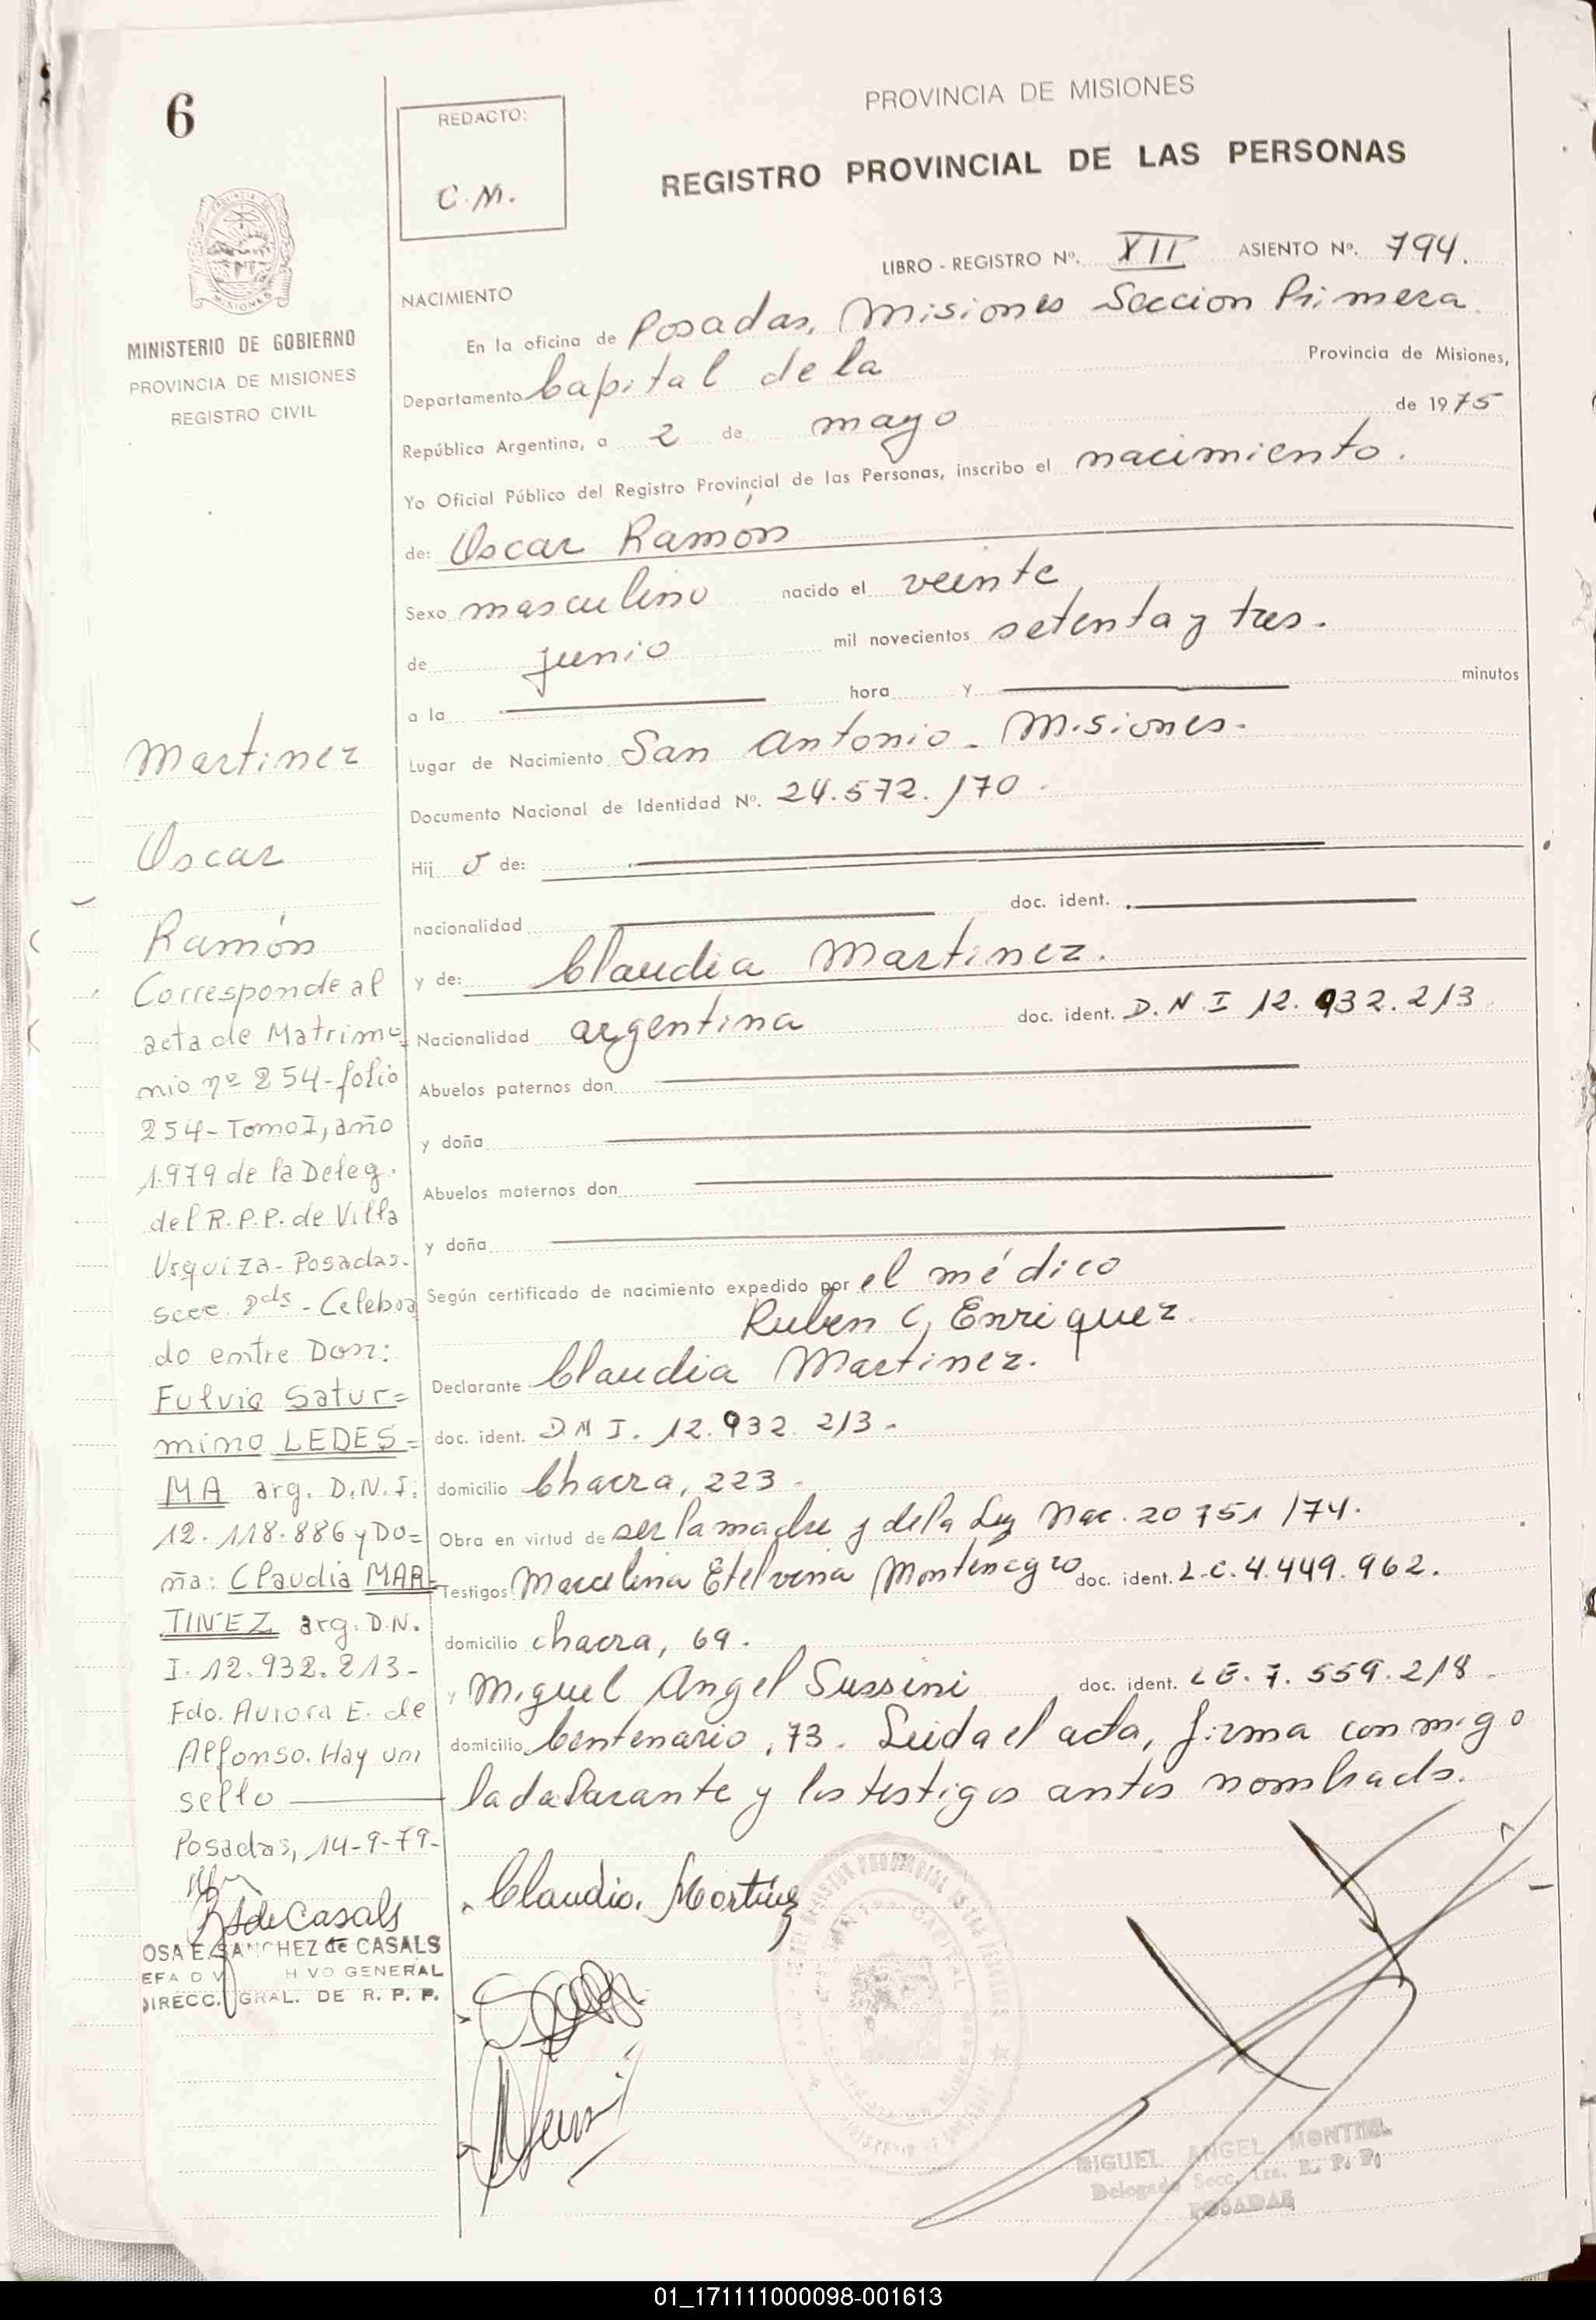 6
REDACTO:
C.M.
PROVINCIA DE MISIONES
REGISTRO PROVINCIAL DE LAS PERSONAS
LIBRO - REGISTRO Nº. XII ASIENTO Nº. 794.
MINISTERIO DE GOBIERNO
PROVINCIA DE MISIONES
REGISTRO CIVIL
NACIMIENTO
En la oficina de Posadas, Misiones Seccion Primera
Departamento Capital de la Provincia de Misiones,
República Argentina, a 2 de mayo de 1975
Yo Oficial Público del Registro Provincial de las Personas, inscribo el nacimiento.
de: Oscar Ramón
Sexo masculino nacido el veinte
de junio mil novecientos setenta y tres.
a la hora y minutos
Lugar de Nacimiento San Antonio - Misiones.
Documento Nacional de Identidad Nº. 24.572.170.
Hij o de:
nacionalidad doc. ident.
y de: Claudia Martinez.
Nacionalidad argentina doc. ident. D.N.I 12.932.213
Abuelos paternos don
y doña
Abuelos maternos don
y doña
Según certificado de nacimiento expedido por el médico
Ruben C, Enriquez.
Declarante Claudia Martinez.
doc. ident. D N I. 12.932.213.
domicilio Chacra, 223.
Obra en virtud de ser la madre y de la Ley Nac. 20751/74.
Testigos Marcelina Etelvina Montenegro doc. ident. L.C. 4.449.962.
domicilio chacra, 69.
y Miguel Angel Sussini doc. ident. L E. 7.559.218
domicilio Centenario, 73. Leida el acta, firma conmigo
la declarante y los testigos antes nombrads.
Claudia Martinez
Martinez
Oscar
Ramón
Corresponde al
acta de Matrimo=
nio nº 254-folio
254-Tomo I, año
1.979 de la Deleg.
del R.P.P. de Villa
Urquiza-Posadas.
Secc. 2da - Celebra
do entre Don:
Fulvio Satur=
nino LEDES=
MA arg. D.N.I:
12.118.886 y Do=
ña: Claudia MAR=
TINEZ arg. D.N.
I. 12.932.213-
Fdo. Aurora E. de
Alfonso. Hay un
sello
Posadas, 14-9-79-
RSdeCasals
OSA E. SANCHEZ de CASALS
EFA D V H VO GENERAL
DIRECC. GRAL. DE R. P. P.
MIGUEL ANGEL MONTIEL
Delegado Secc. 1ra. R. P. P.
POSADAS
01_171111000098-001613